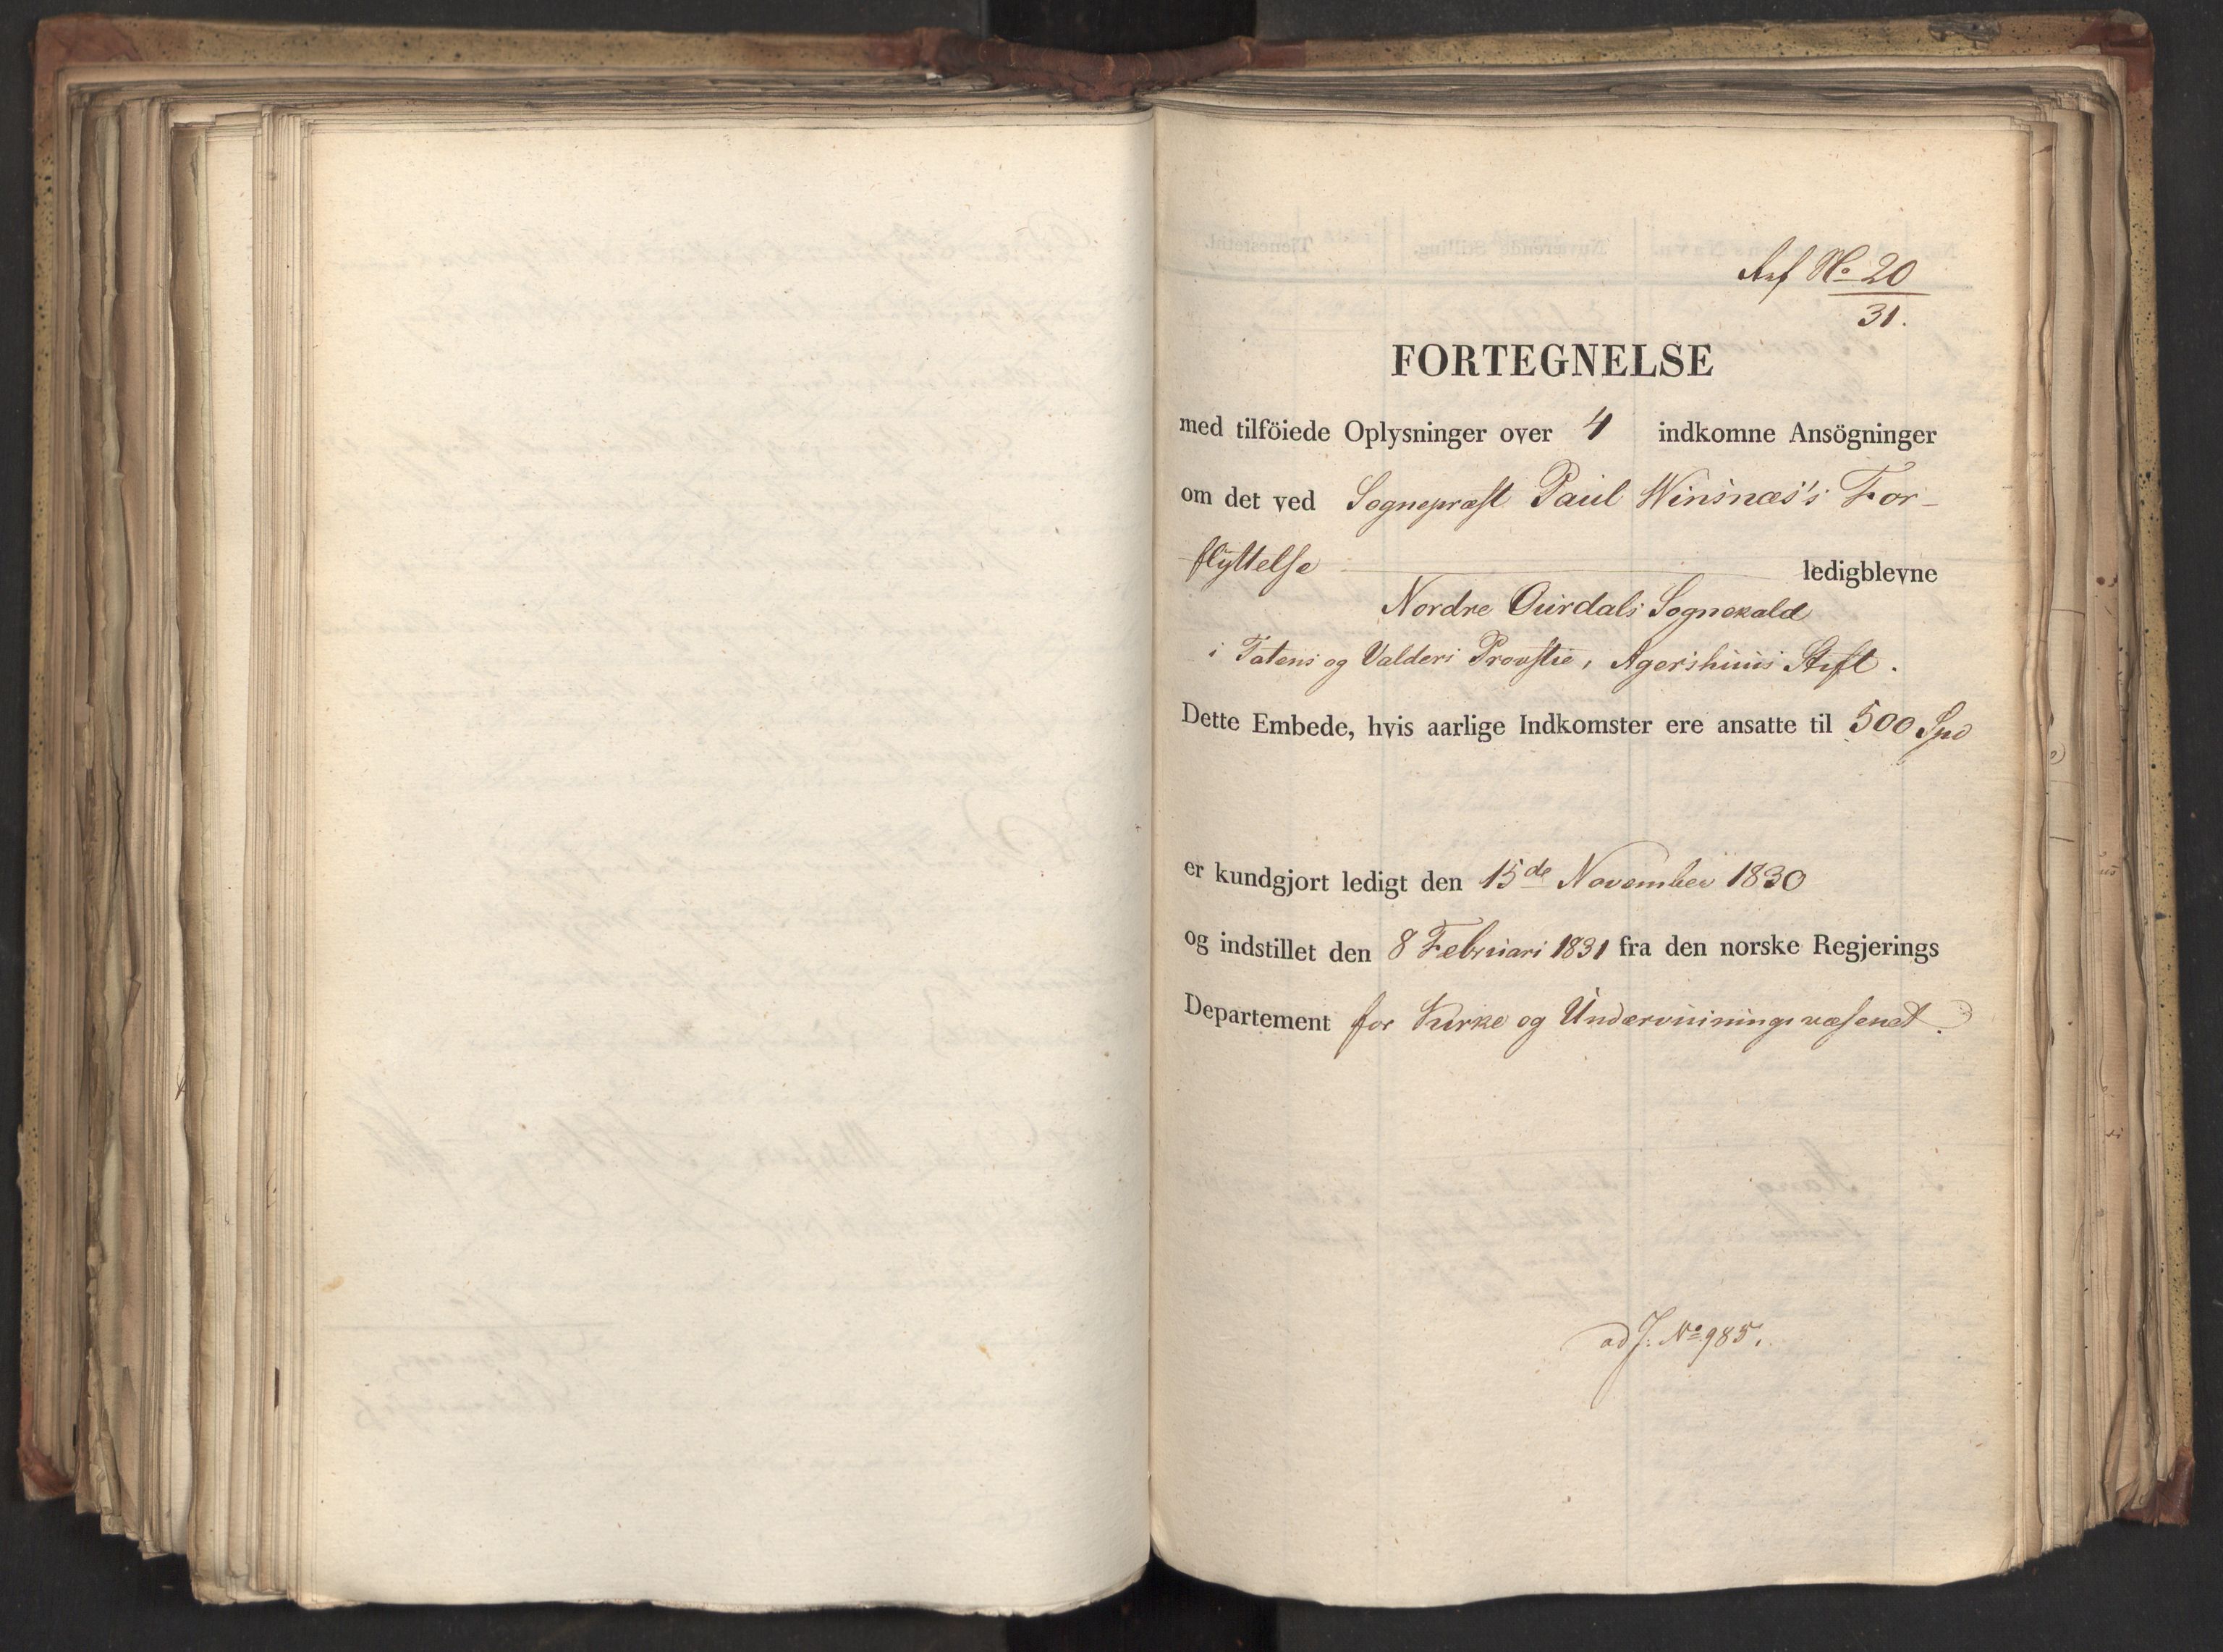 Ref No 20
31.
FORTEGNELSE
med tilföiede Oplysninger over 4 indkomne Ansögninger
om det ved Sognepræst Paul Winsnæs's For-
flyttelse ledigblevne
Nordre Ourdals Sognekald
i Totens og Valders Provstie, Agershuus Stift.
Dette Embede, hvis aarlige Indkomster ere ansatte til 500 Spd
er kundgjort ledigt den 15de November 1830
og indstillet den 8 Februari 1831 fra den norske Regjerings
Departement for Kirke og Underviisningsvæsenet.
ad J. No 985.